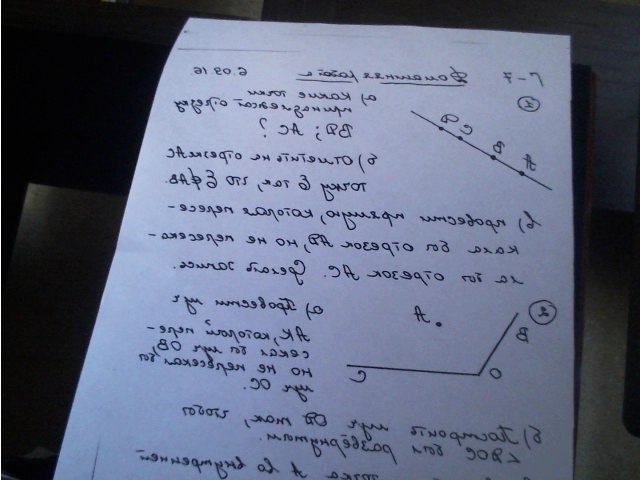 Г-7 Домашняя работа 6.09.16
①
а) Какие точки
принадлежат отрезку
BD; AC?
A B C D
б) Отметить на отрезке AC
точку E так, что E∉AB.
в) провести прямую, которая пересе-
кала бы отрезок AD, но не пересека-
ла бы отрезок AC. Сделать запись.
②
а) Провести луч
AK, который пере-
секал бы луч OB,
но не пересекал бы
луч OC.
A B O C
б) Построить луч OD так, чтобы
∠DOC был развёрнутым.
точка A во внутренней